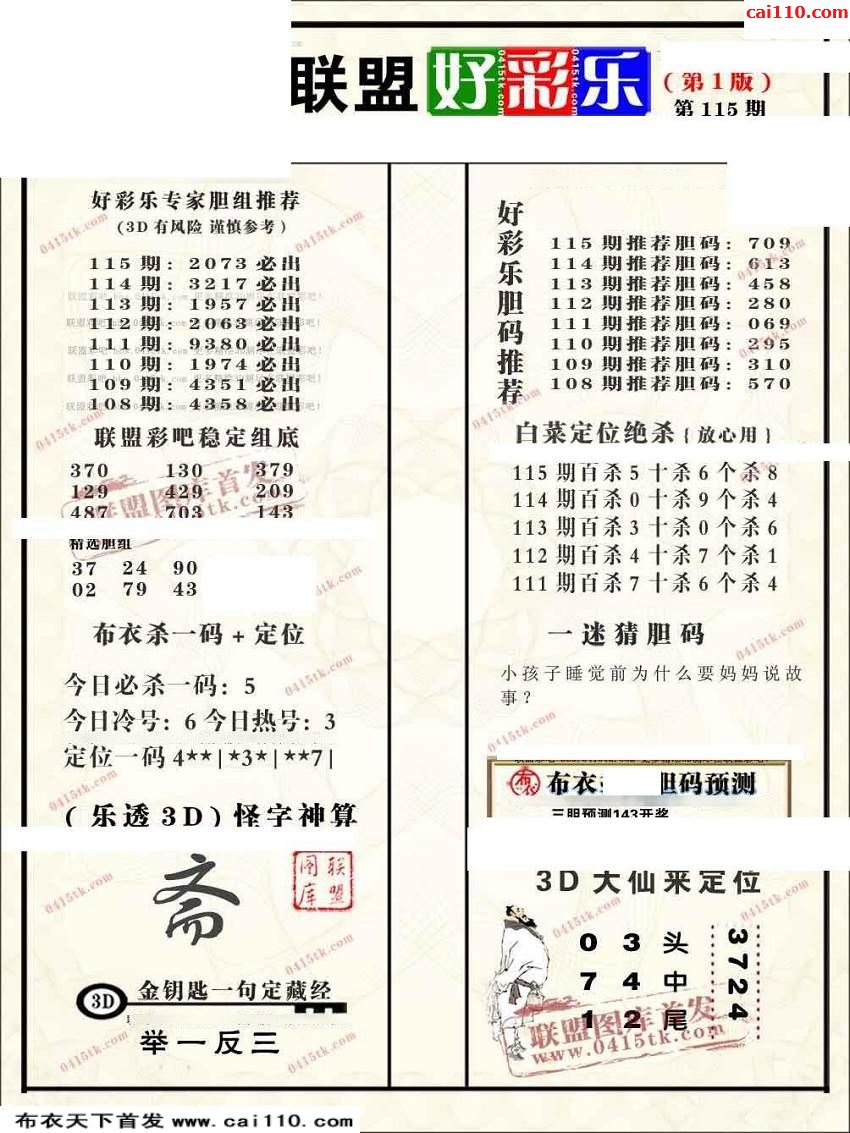 cai110.com
联盟 好彩乐
(第1版)
第115期
好彩乐专家胆组推荐
(3D有风险 谨慎参考)
115期: 2073必出
114期: 3217必出
113期: 1957必出
112期: 2063必出
111期: 9380必出
110期: 1974必出
109期: 4351必出
108期: 4358必出
联盟彩吧稳定组底
370 130 379
129 429 209
487 703 143
精选胆组
37 24 90
02 79 43
布衣杀一码+定位
今日必杀一码: 5
今日冷号: 6 今日热号: 3
定位一码 4**|*3*|**7|
(乐透3D) 怪字神算
斋
联盟图库
3D 金钥匙一句定藏经
举一反三
好彩乐胆码推荐
115期推荐胆码: 709
114期推荐胆码: 613
113期推荐胆码: 458
112期推荐胆码: 280
111期推荐胆码: 069
110期推荐胆码: 295
109期推荐胆码: 310
108期推荐胆码: 570
白菜定位绝杀{放心用}
115期百杀5十杀6个杀8
114期百杀0十杀9个杀4
113期百杀3十杀0个杀6
112期百杀4十杀7个杀1
111期百杀7十杀6个杀4
一迷猜胆码
小孩子睡觉前为什么要妈妈说故
事?
布衣 胆码预测
三胆预测143开奖
3D大仙来定位
0 3 头
7 4 中
1 2 尾
3724
联盟图库首发
www.0415tk.com
布衣天下首发 www.cai110.com